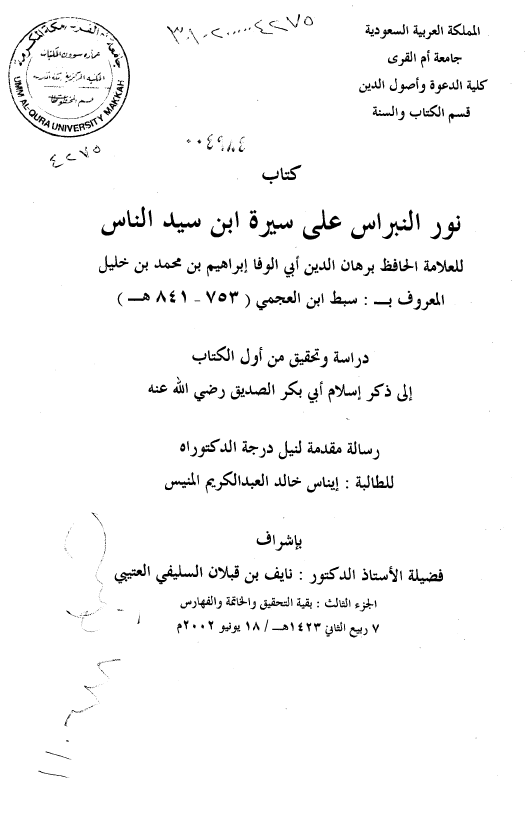 المملكة العربية السعودية
جامعة أم القرى
كلية الدعوة وأصول الدين
قسم الكتاب والسنة
٣٠١٠٢٠٠٠٠٠٤٢٧٥
UMM AL-QURA UNIVERSITY MAKKAH
٤٢٧٥
٠٠٤٩٨٤
كتاب
نور النبراس على سيرة ابن سيد الناس
للعلامة الحافظ برهان الدين أبي الوفا إبراهيم بن محمد بن خليل
المعروف بـــ : سبط ابن العجمي ( ٧٥٣ - ٨٤١ هـــ )
دراسة وتحقيق من أول الكتاب
إلى ذكر إسلام أبي بكر الصديق رضي الله عنه
رسالة مقدمة لنيل درجة الدكتوراه
للطالبة : إيناس خالد العبدالكريم المنيس
بإشراف
فضيلة الأستاذ الدكتور : نايف بن قبلان السليفي العتيبي
الجزء الثالث : بقية التحقيق والخاتمة والفهارس
٧ ربيع الثاني ١٤٢٣هـــ / ١٨ يونيو ٢٠٠٢م